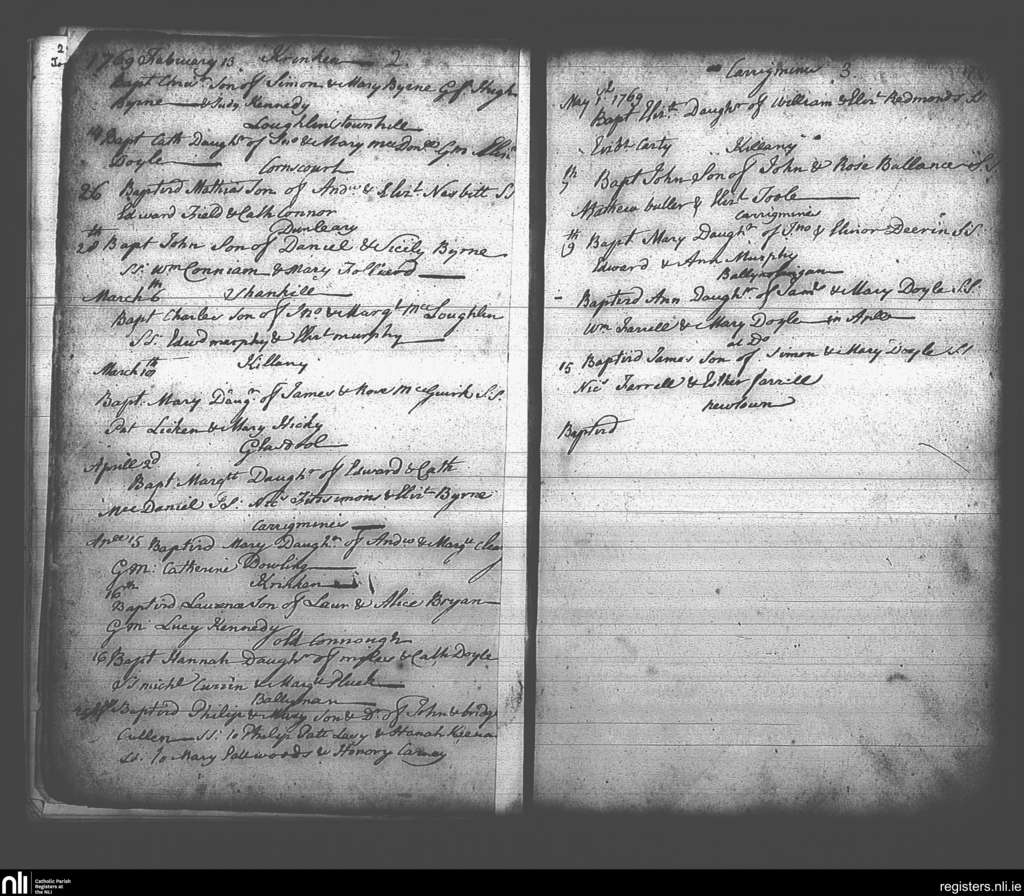 1769 February 13 Krinken 2
Bapt Chrisr Son of Simon & Mary Byrne Gf Hugh
Byrne & Judy Kennedy
Loughlinstownhill
Bapt Cath Daughtr of Jno & Mary McDonell Gm
Doyle
Cornscourt
26 Baptisd Mathias Son of Andw & Elizt Nesbitt SS
Edward Field & Cath Connor
Dunleary
28th Bapt John Son of Daniel & Sicily Byrne
SS: Wm Conniam & Mary
March 6th Shankill
Bapt Charles Son of Jno & Margt McLoughlin
SS. Edwd murphy & Elizt murphy
March 10th Killany
Bapt. Mary Daugr of James & Rose McGuirk S.S.
Pat Licken & Mary Hicky
Glasdool
Aprill 2d
Bapt Margtt Daughtr of Edward & Cath
MacDaniel SS: Nics Fitzsimons & Elizt Byrne
Carrigmines
15 Baptisd Mary Daughtr of Andw & Margtt
Gm: Catherine Dowling
16th Krinken
Baptisd Laurence Son of Laur & Alice Bryan
Gm Lucy Kennedy
old Connough
16 Bapt Hannah Daughtr of myles & Cath Doyle
SS michl Curren & Margtt Pluck
Ballyman
Baptisd Philip & Mary Son & Dr of John & bridgt
Cullen SS: to Philip Patt Lacy & Hanah
SS. to Mary Patt woods & Honory Carney
Carrigmines 3
May 1st 1769
Bapt Elizt Daughtr of William & Elizt Redmonds SS
Carty Killany
7th Bapt John Son of John & Rose Ballance S.S.
Mathew buller & Elizt Toole
Carrigmines
9th Bapt Mary Daughtr of Jno & Elinor Deerin S.S.
Edward & Ann Murphy
- Baptisd Ann Daughtr of Jams & Mary Doyle S.S.
Wm Farrell & Mary Doyle
at Do
15 Baptisd James Son of Simon & Mary Doyle SS
Nics Farrell & Esther farrill
newtown
Baptisd
nli Catholic Parish
Registers at
the NLI
registers.nli.ie